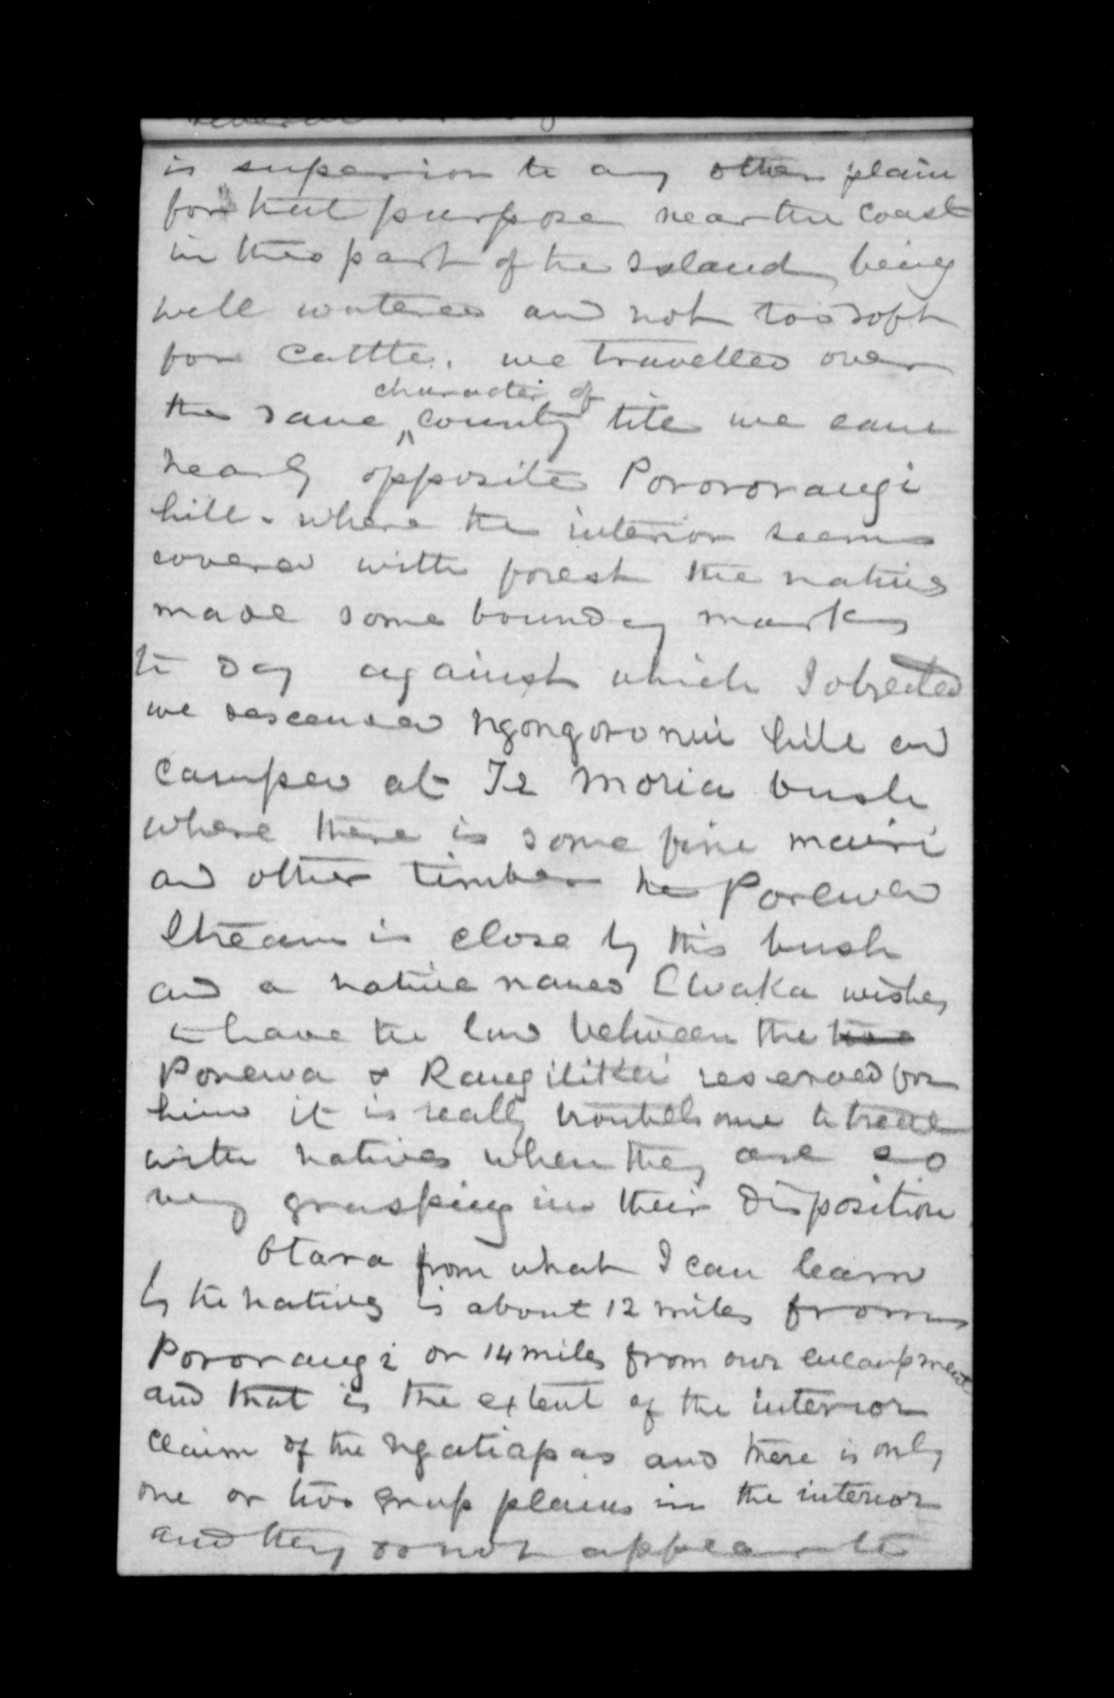 is superior to any other plain
for that purpose near the coast
in this part of the Island being
well watered and not too soft
for Cattle. we travelled over
character of
the same country till we came
nearly opposite Porororangi
hill. where the interior seems
covered with forest the natives
made some boundy marks
to day against which I objected
we descended Ngongoronui hill and
camped at Te Moria bush
where there is some fine mairi
and other timber he Porewa
Stream is close by this bush
and a native named Elvaka wishes
to have the land between the
Porewa & Rangitikei reserved for
him it is really troublesome to treat
with natives when they are so
very grasping in their disposition
Otara from what I can learn
by the natives is about 12 miles from
Pororangi or 14 miles from our encampment
and that is the extent of the interior
claim of the Ngatiapas and there is only
one or two grass plains in the interior
and they do not appear to